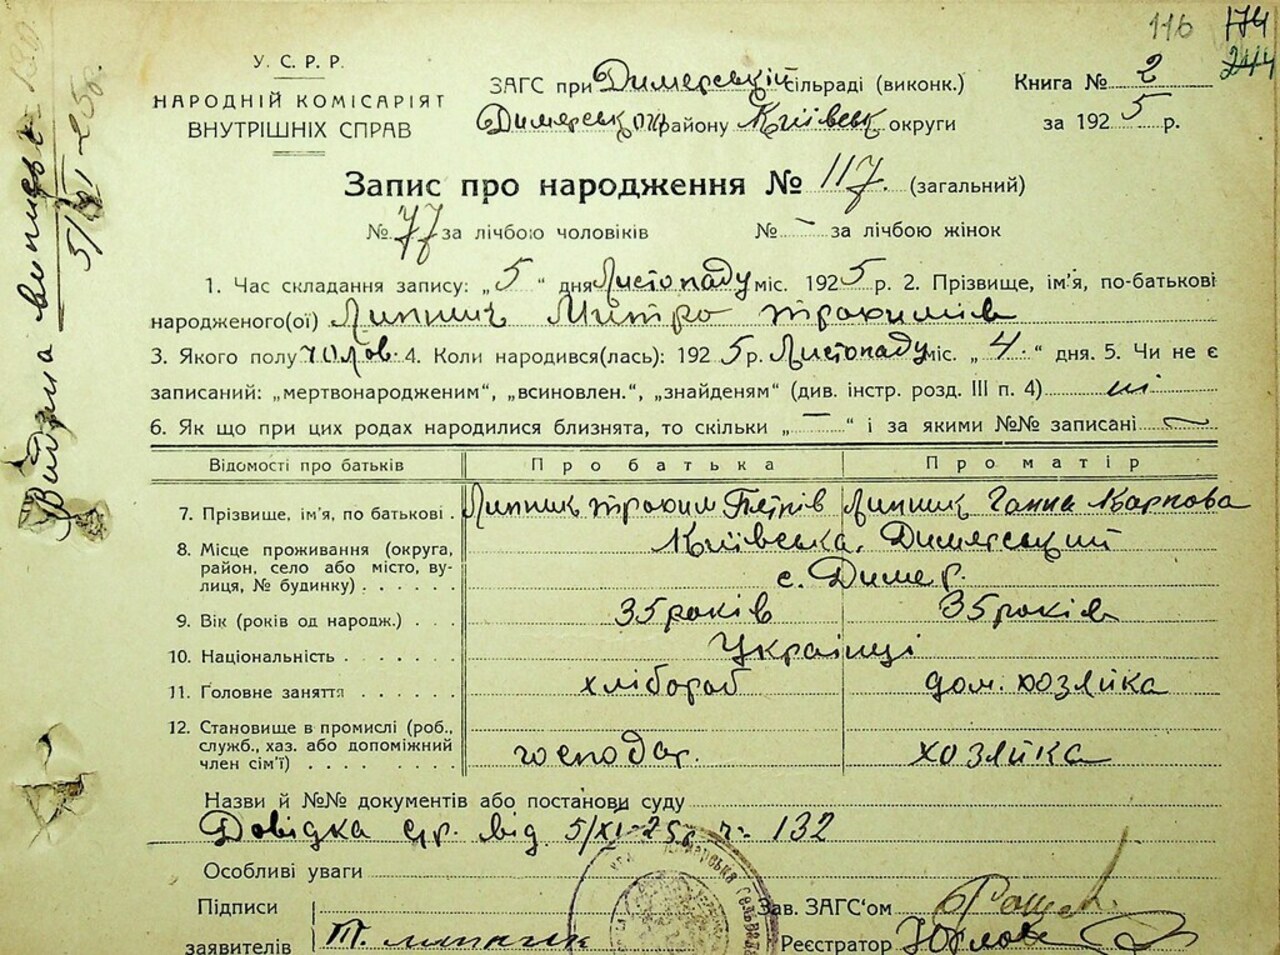 116 174
244
У. С. Р. Р.
НАРОДНІЙ КОМІСАРІЯТ
ВНУТРІШНІХ СПРАВ
ЗАГС при Димерській сільраді (виконк.)
Димерського району Київськ округи
Книга № 2
за 1925 р.
Видана випись 5/XI-25р.
Запис про народження № 117. (загальний)
№ 77 за лічбою чоловіків № — за лічбою жінок
1. Час складання запису: „5“ дня Листопаду міс. 1925 р. 2. Прізвище, ім'я, по-батькові
народженого(ої) Липник Митро Трохимів
3. Якого полу чолов. 4. Коли народився(лась): 1925 р. Листопаду міс. „4.“ дня. 5. Чи не є
записаний: „мертвонародженим“, „всиновлен.“, „знайденям“ (див. інстр. розд. III п. 4) ні
6. Як що при цих родах народилися близнята, то скільки „—“ і за якими №№ записані —
Відомості про батьків Про батька Про матір
7. Прізвище, ім'я, по батькові . Липник Трохим Петрів Липник Ганна Карпова
8. Місце проживання (округа, район, село або місто, вулиця, № будинку) . . . . . . Київська, Димерський
с. Димер.
9. Вік (років од народж.) . . . 35 років 35 років
10. Національність . . . . . . . Українці
11. Головне заняття . . . . . . хлібороб дом. хозяйка
12. Становище в промислі (роб., служб., хаз. або допоміжний член сім'ї) . . . . . . . . . господар. хозяйка
Назви й №№ документів або постанови суду
Довідка с/р. від 5/XI-25р. ч. 132
Особливі уваги
Підписи
заявителів Т. Липник
Зав. ЗАГС'ом
Реєстратор